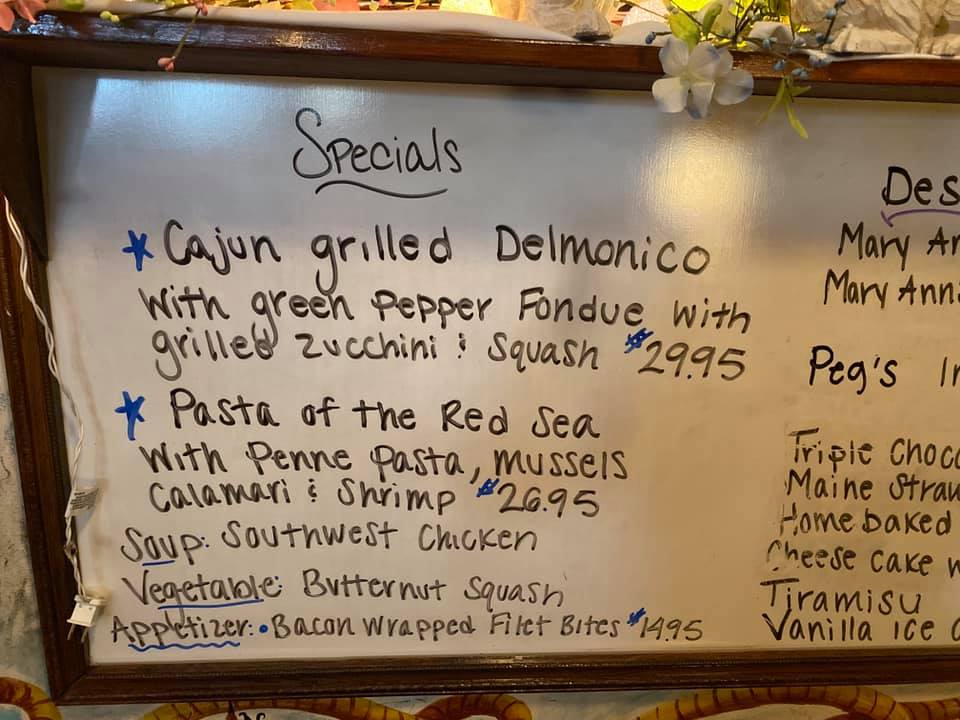 Specials
* Cajun grilled Delmonico
with green Pepper Fondue with
grilled Zucchini & Squash $29.95
* Pasta of the Red Sea
with Penne Pasta, mussels
Calamari & Shrimp $26.95
Soup: Southwest Chicken
Vegetable: Butternut Squash
Appetizer: • Bacon Wrapped Filet Bites $14.95
Des
Mary An
Mary Ann
Peg's In
Triple Choco
Maine Straw
Homebaked
Cheese cake w
Tiramisu
Vanilla Ice